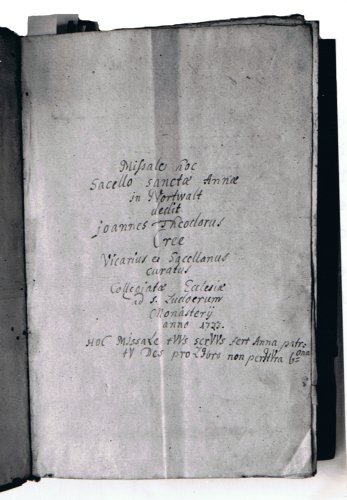 Missale hoc
Sacello sanctæ Annæ
in Nortwalt
dedit
joannes Theodorus
Cree
Vicarius et Sacellanus
curatus
Collegiatæ Eclesiæ
ad s. Ludgerum
Monasterij
anno 1723.
HOC MIssaLe tVVs serVVs fert Anna patro
tV Des pro LIbro non perItVra bona